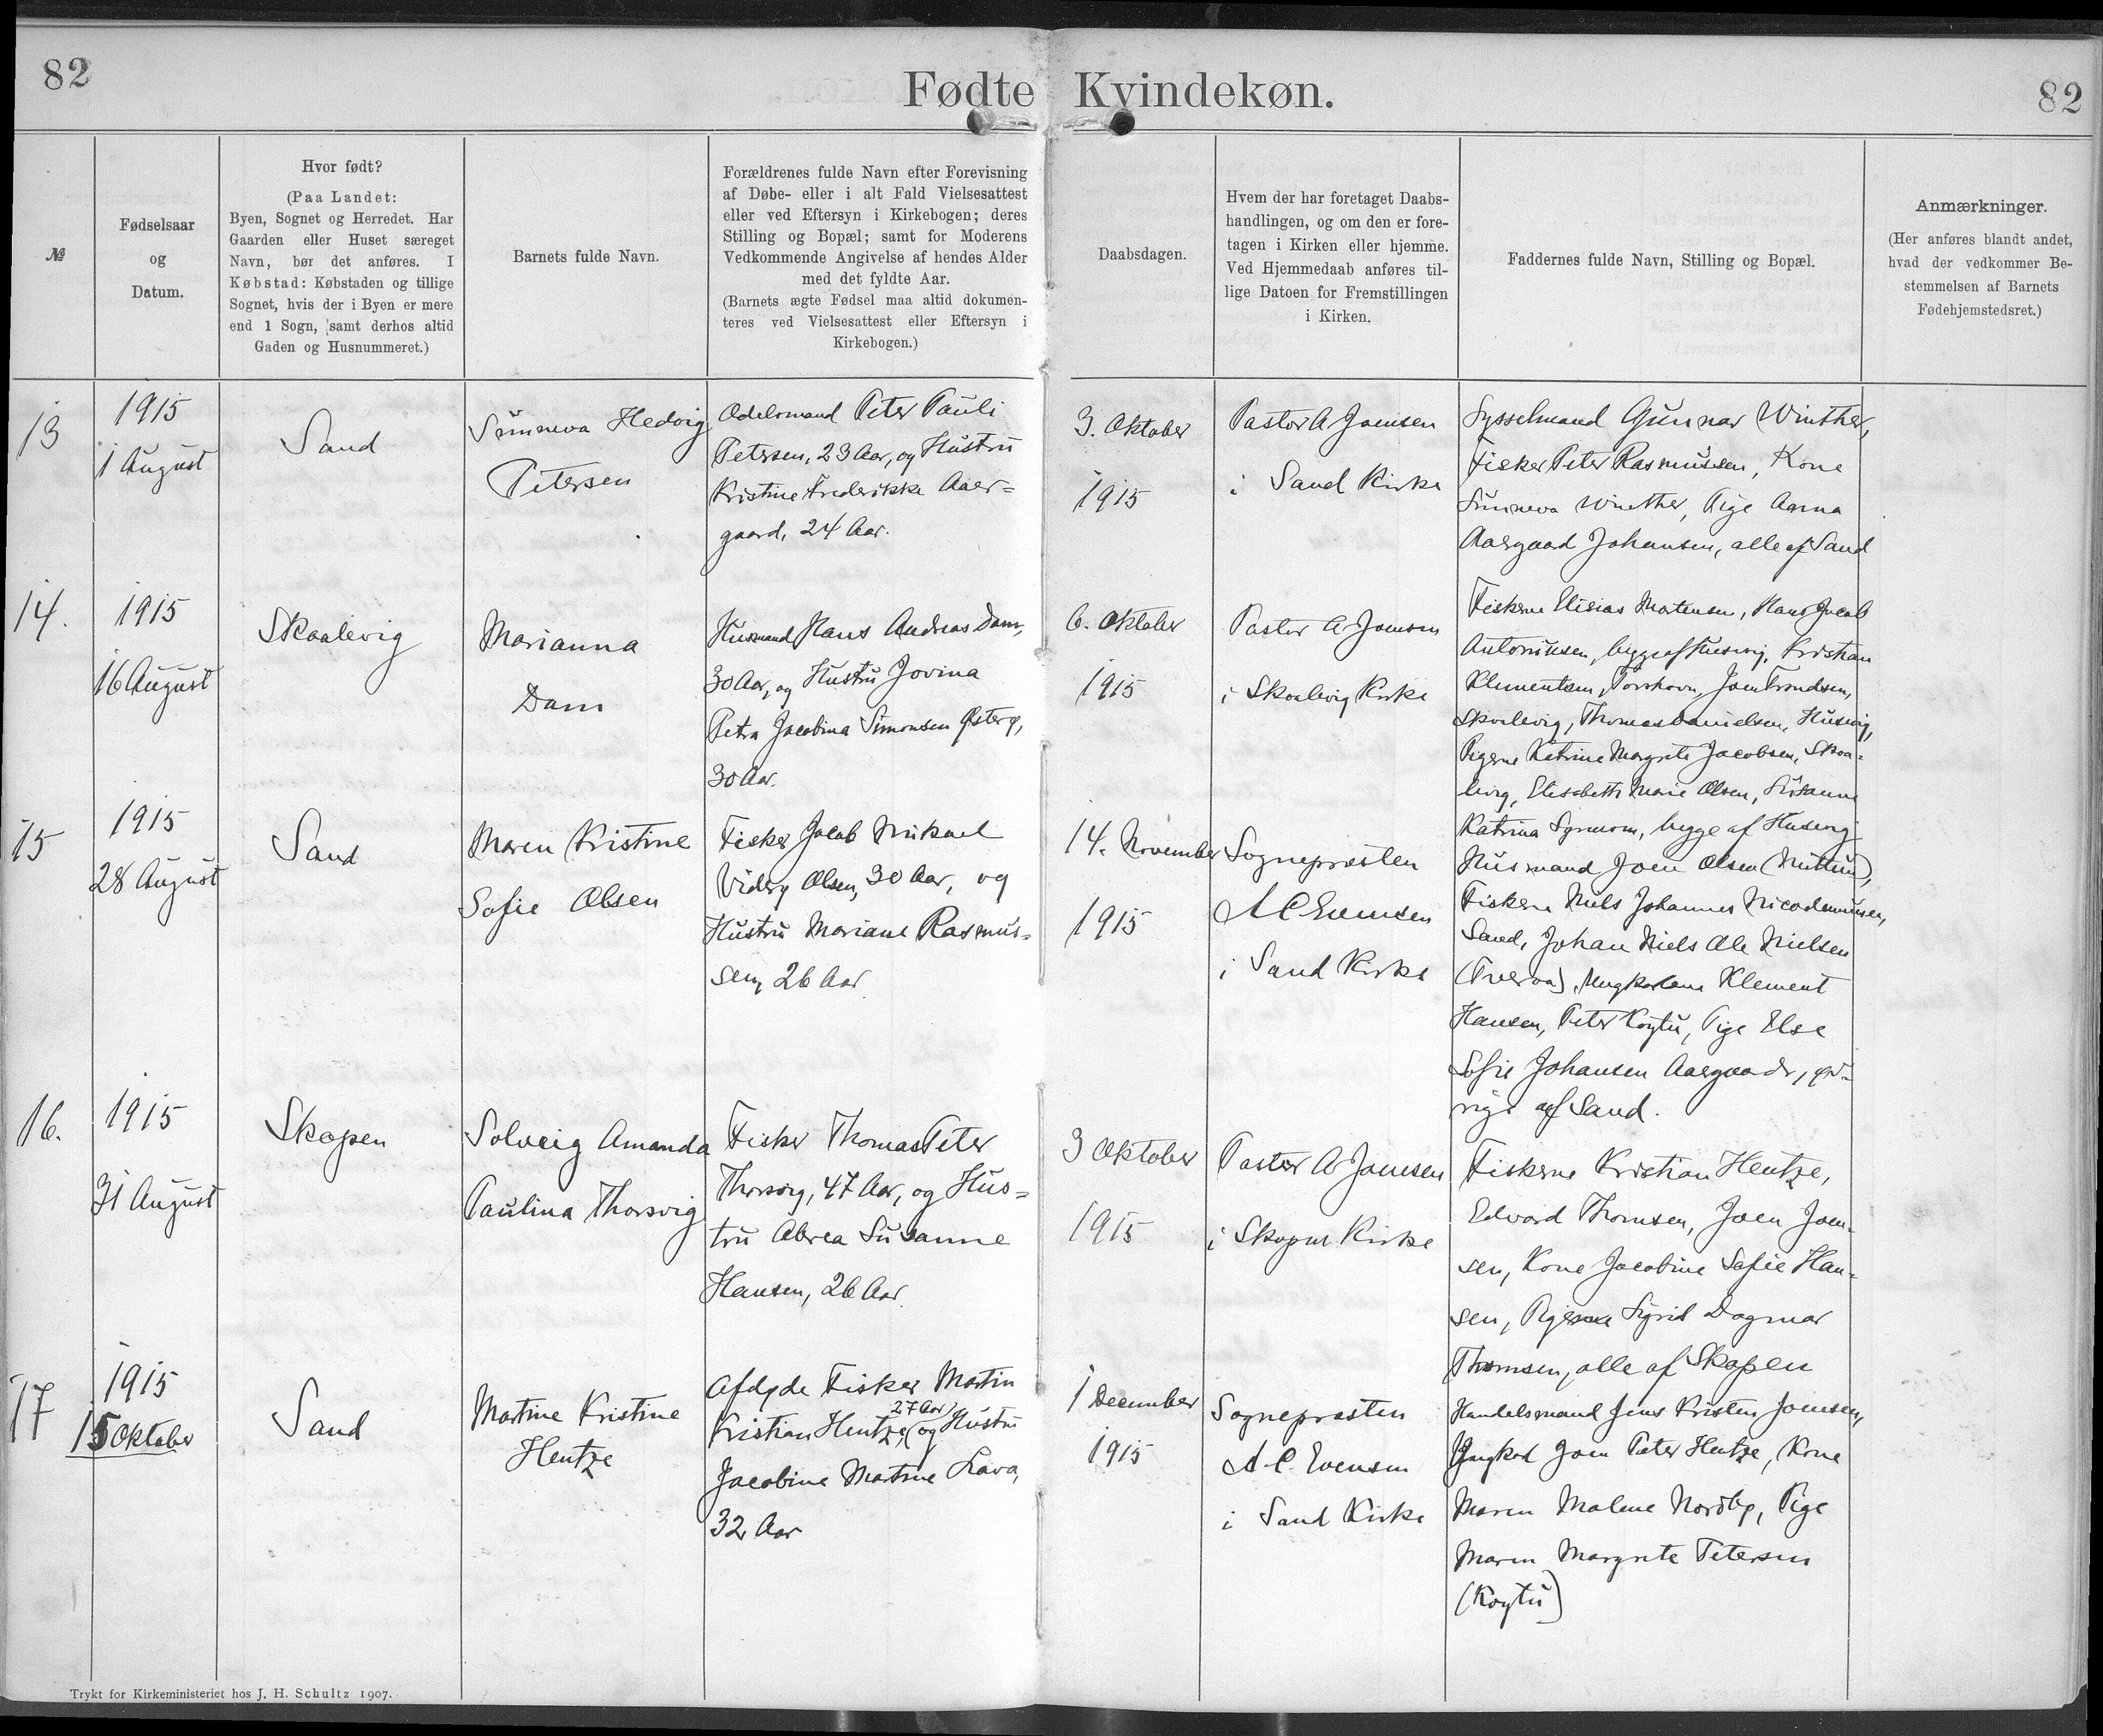 82
Fødte Kvindekøn.
82
№
Fødselsaar
og
Datum.
Hvor født?
(Paa Landet:
Byen, Sognet og Herredet. Har
Gaarden eller Huset særeget
Navn, bør det anføres. I
Købstad: Købstaden og tillige
Sognet, hvis der i Byen er mere
end 1 Sogn, samt derhos altid
Gaden og Husnummeret.)
Barnets fulde Navn.
Forældrenes fulde Navn efter Forevisning
af Døbe- eller i alt Fald Vielsesattest
eller ved Eftersyn i Kirkebogen; deres
Stilling og Bopæl; samt for Moderens
Vedkommende Angivelse af hendes Alder
med det fyldte Aar.
(Barnets ægte Fødsel maa altid dokumen-
teres ved Vielsesattest eller Eftersyn i
Kirkebogen.)
Daabsdagen.
Hvem der har foretaget Daabs-
handlingen, og om den er fore-
tagen i Kirken eller hjemme.
Ved Hjemmedaab anføres til-
lige Datoen for Fremstillingen
i Kirken.
Faddernes fulde Navn, Stilling og Bopæl.
Anmærkninger.
(Her anføres blandt andet,
hvad der vedkommer Be-
stemmelsen af Barnets
Fødehjemstedsret.)
13
1915
1 August
Sand
Sunneva Hedvig
Petersen
Odelsmand Peter Pauli
Petersen, 23 Aar, og Hustru
Kristine Frederikke Aaer=
gaard, 24 Aar.
3. Oktober
1915
Pastor A Joensen
i Sand Kirke
Sysselmand Gunnar Winther,
Fisker Peter Rasmussen, Kone
Sunneva Winther, Pige Anna
Aaergaard Johansen, alle af Sand
14.
1915
16 August
Skaalevig
Marianna
Dam
Husmand Hans Andreas Dam,
30 Aar, og Hustru Jovina
Petra Jacobina Simonsen Østerø,
30 Aar.
6. Oktober
1915
Pastor A Joensen
i Skaalevig Kirke
Fiskerne Elisias Mortensen, Hans Jacob
Antoniusen, begge af Husevig, Kristian
Klementsen, Torshavn, Joen Trondsen,
Skaalevig, Thomas Danielsen, Husevig,
Pigerne Katrine Margrete Jacobsen, Skaa-
levig, Elisabeth Marie Olsen, Susanne
Katrina begge af Husevig
15
1915
28 August
Sand
Maren Kristine
Sofie Olsen
Fisker Jacob Mikael
Viderø Olsen, 30 Aar, og
Hustru Mariane Rasmus=
sen, 26 Aar
14. November
1915
Sognepræsten
A C Evensen
i Sand Kirke
Husmand Joen Olsen
Fiskerne Niels Johannes Nicodemussen,
Sand, Johan Niels Ole Nielsen
(Tveraa), Ungkarlene Klement
Hansen, Peter Køytu, Pige Else
Sofie Johansen Aargaard, øv-
rige af Sand.
16.
1915
31 August
Skopen
Solveig Amanda
Paulina Thorsvig
Fisker Thomas Peter
Thorsvig, 47 Aar, og Hus=
tru Abrea Susanne
Hansen, 26 Aar.
3 Oktober
1915
Pastor A Joensen
i Skopen Kirke
Fiskerne Kristian Hentze,
Edvard Thomsen, Joen Joen-
sen, Kone Jacobine Sofie Han-
sen, Pigerne Sigrid Dagmar
Thomsen, alle af Skopen
17
1915
15 Oktober
Sand
Martine Kristine
Hentze
Afdøde Fisker Martin
Kristian Hentze, (27 Aar) og Hustru
Jacobine Martine Lava,
32 Aar
1 December
1915
Sognepræsten
A C. Evensen
i Sand Kirke
Handelsmand Jens Kristen Joensen,
Ungkarl Joen Peter Hentze, Kone
Maren Malene Norðbø, Pige
Maren Margrete Petersen
(Køytu)
Trykt for Kirkeministeriet hos J. H. Schultz 1907.